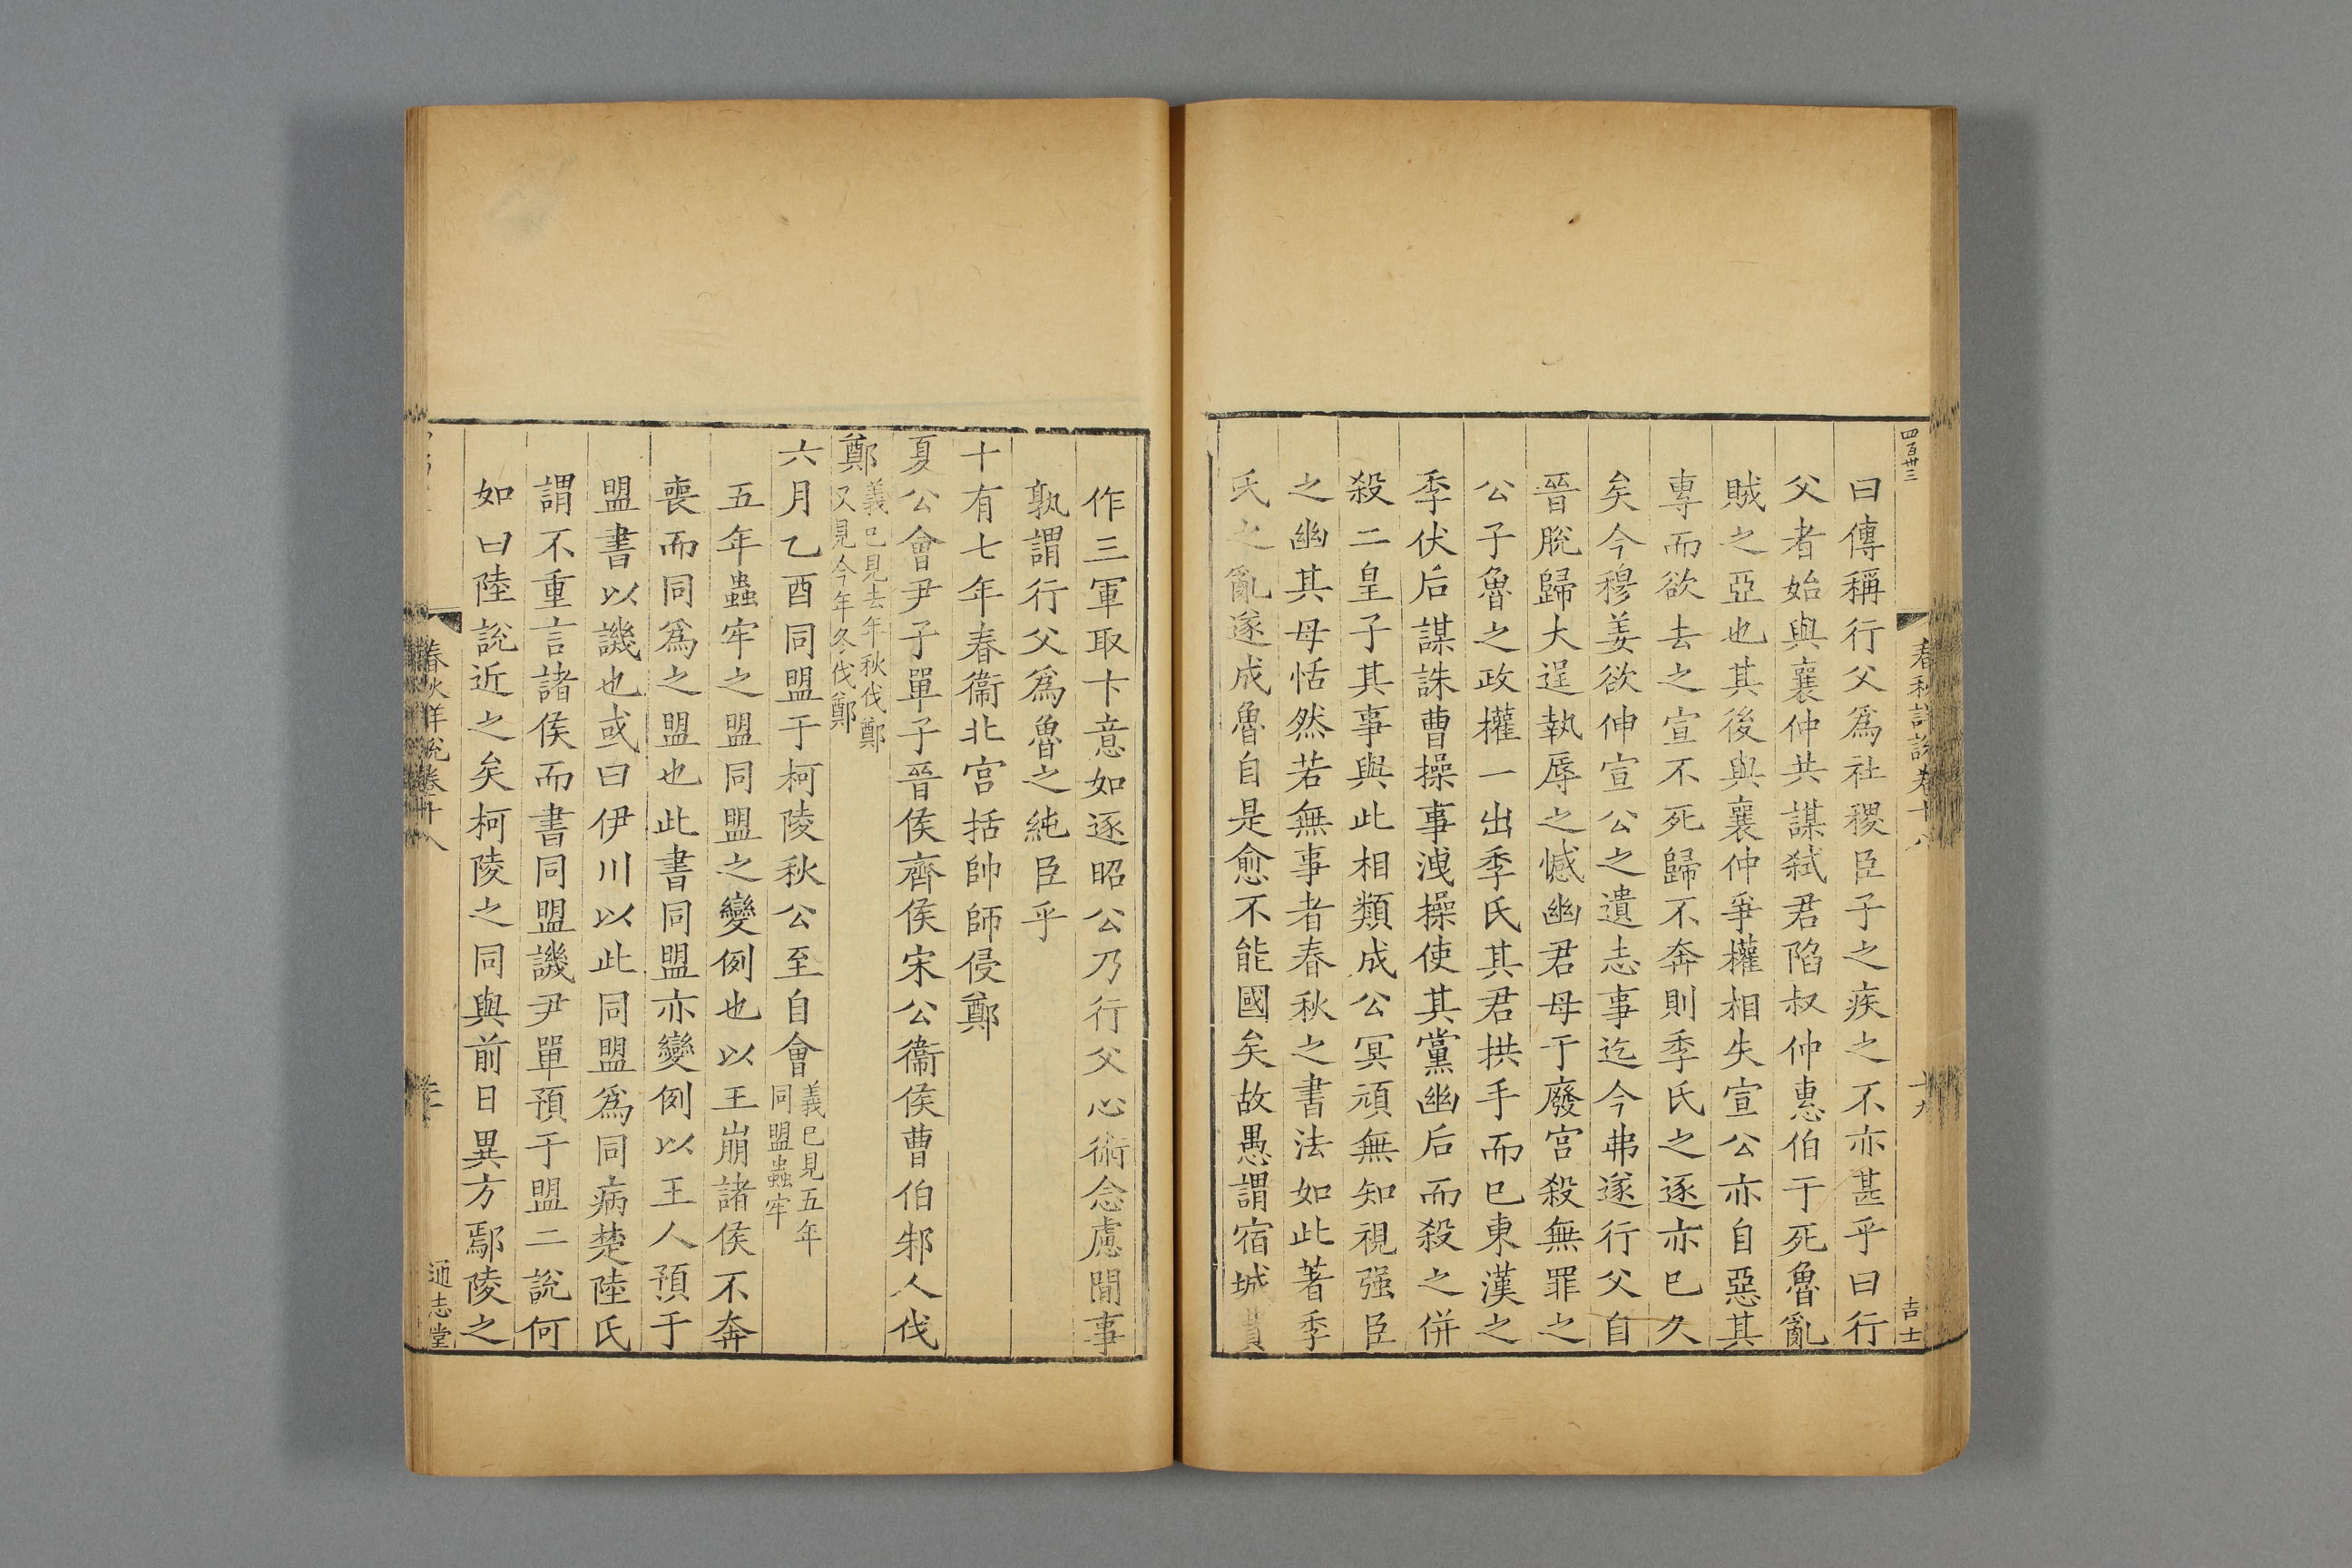 四百卅三
春秋詳說卷十八
十九
吉士
曰傳稱行父爲社稷臣子之疾之不亦甚乎曰行
父者始與襄仲共謀弑君陷叔仲惠伯于死魯亂
賊之亞也其後與襄仲爭權相失宣公亦自惡其
專而欲去之宣不死歸不奔則季氏之逐亦已久
矣今穆姜欲伸宣公之遺志事迄今弗遂行父自
晉脫歸大逞執辱之憾幽君母于廢宮殺無罪之
公子魯之政權一出季氏其君拱手而已東漢之
季伏后謀誅曹操事洩操使其黨幽后而殺之併
殺二皇子其事與此相類成公冥頑無知視强臣
之幽其母恬然若無事者春秋之書法如此著季
氏之亂遂成魯自是愈不能國矣故愚謂宿城費
作三軍取卞意如逐昭公乃行父心術念慮間事
孰謂行父爲魯之純臣乎
十有七年春衞北宮括帥師侵鄭
夏公會尹子單子晉侯齊侯宋公衞侯曹伯邾人伐
鄭義已見去年秋伐鄭又見今年冬伐鄭
六月乙酉同盟于柯陵秋公至自會義已見五年同盟蟲牢
五年蟲牢之盟同盟之變例也以王崩諸侯不奔
喪而同爲之盟也此書同盟亦變例以王人預于
盟書以譏也或曰伊川以此同盟爲同病楚陸氏
謂不重言諸侯而書同盟譏尹單預于盟二說何
如曰陸說近之矣柯陵之同與前日異方鄢陵之
春秋詳說卷十八
通志堂